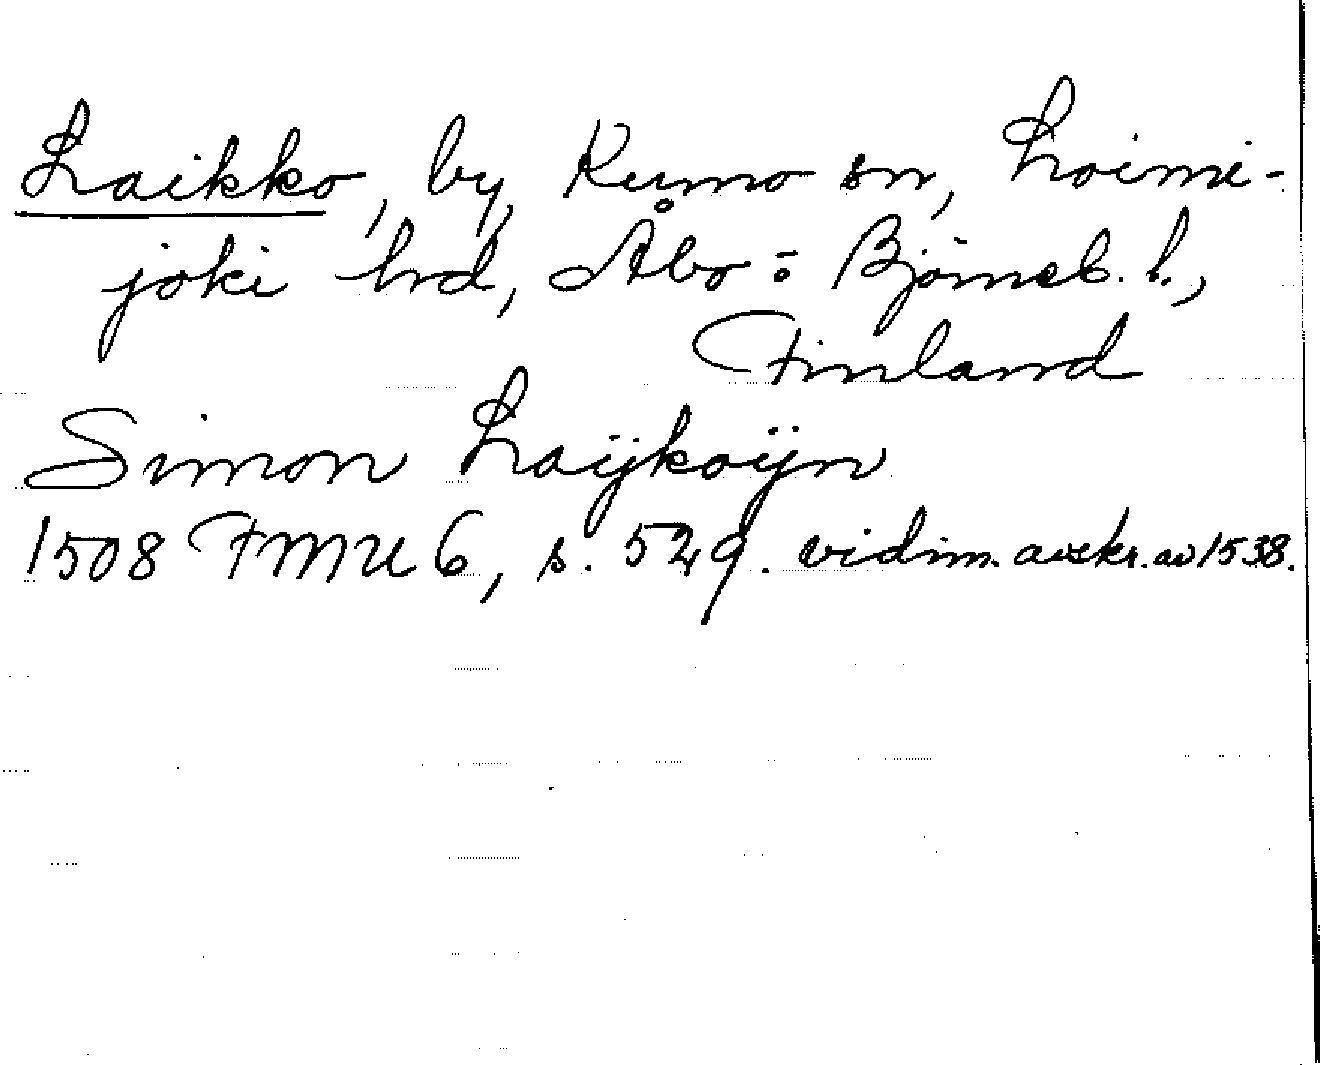 Laikko, by, Kumo sn, Loimi-
joki hd, Åbo = Björneb. l.,
Finland
Simon Laÿkoÿn
1508 FMU 6, s. 529. vidim. avskr. av 1538.